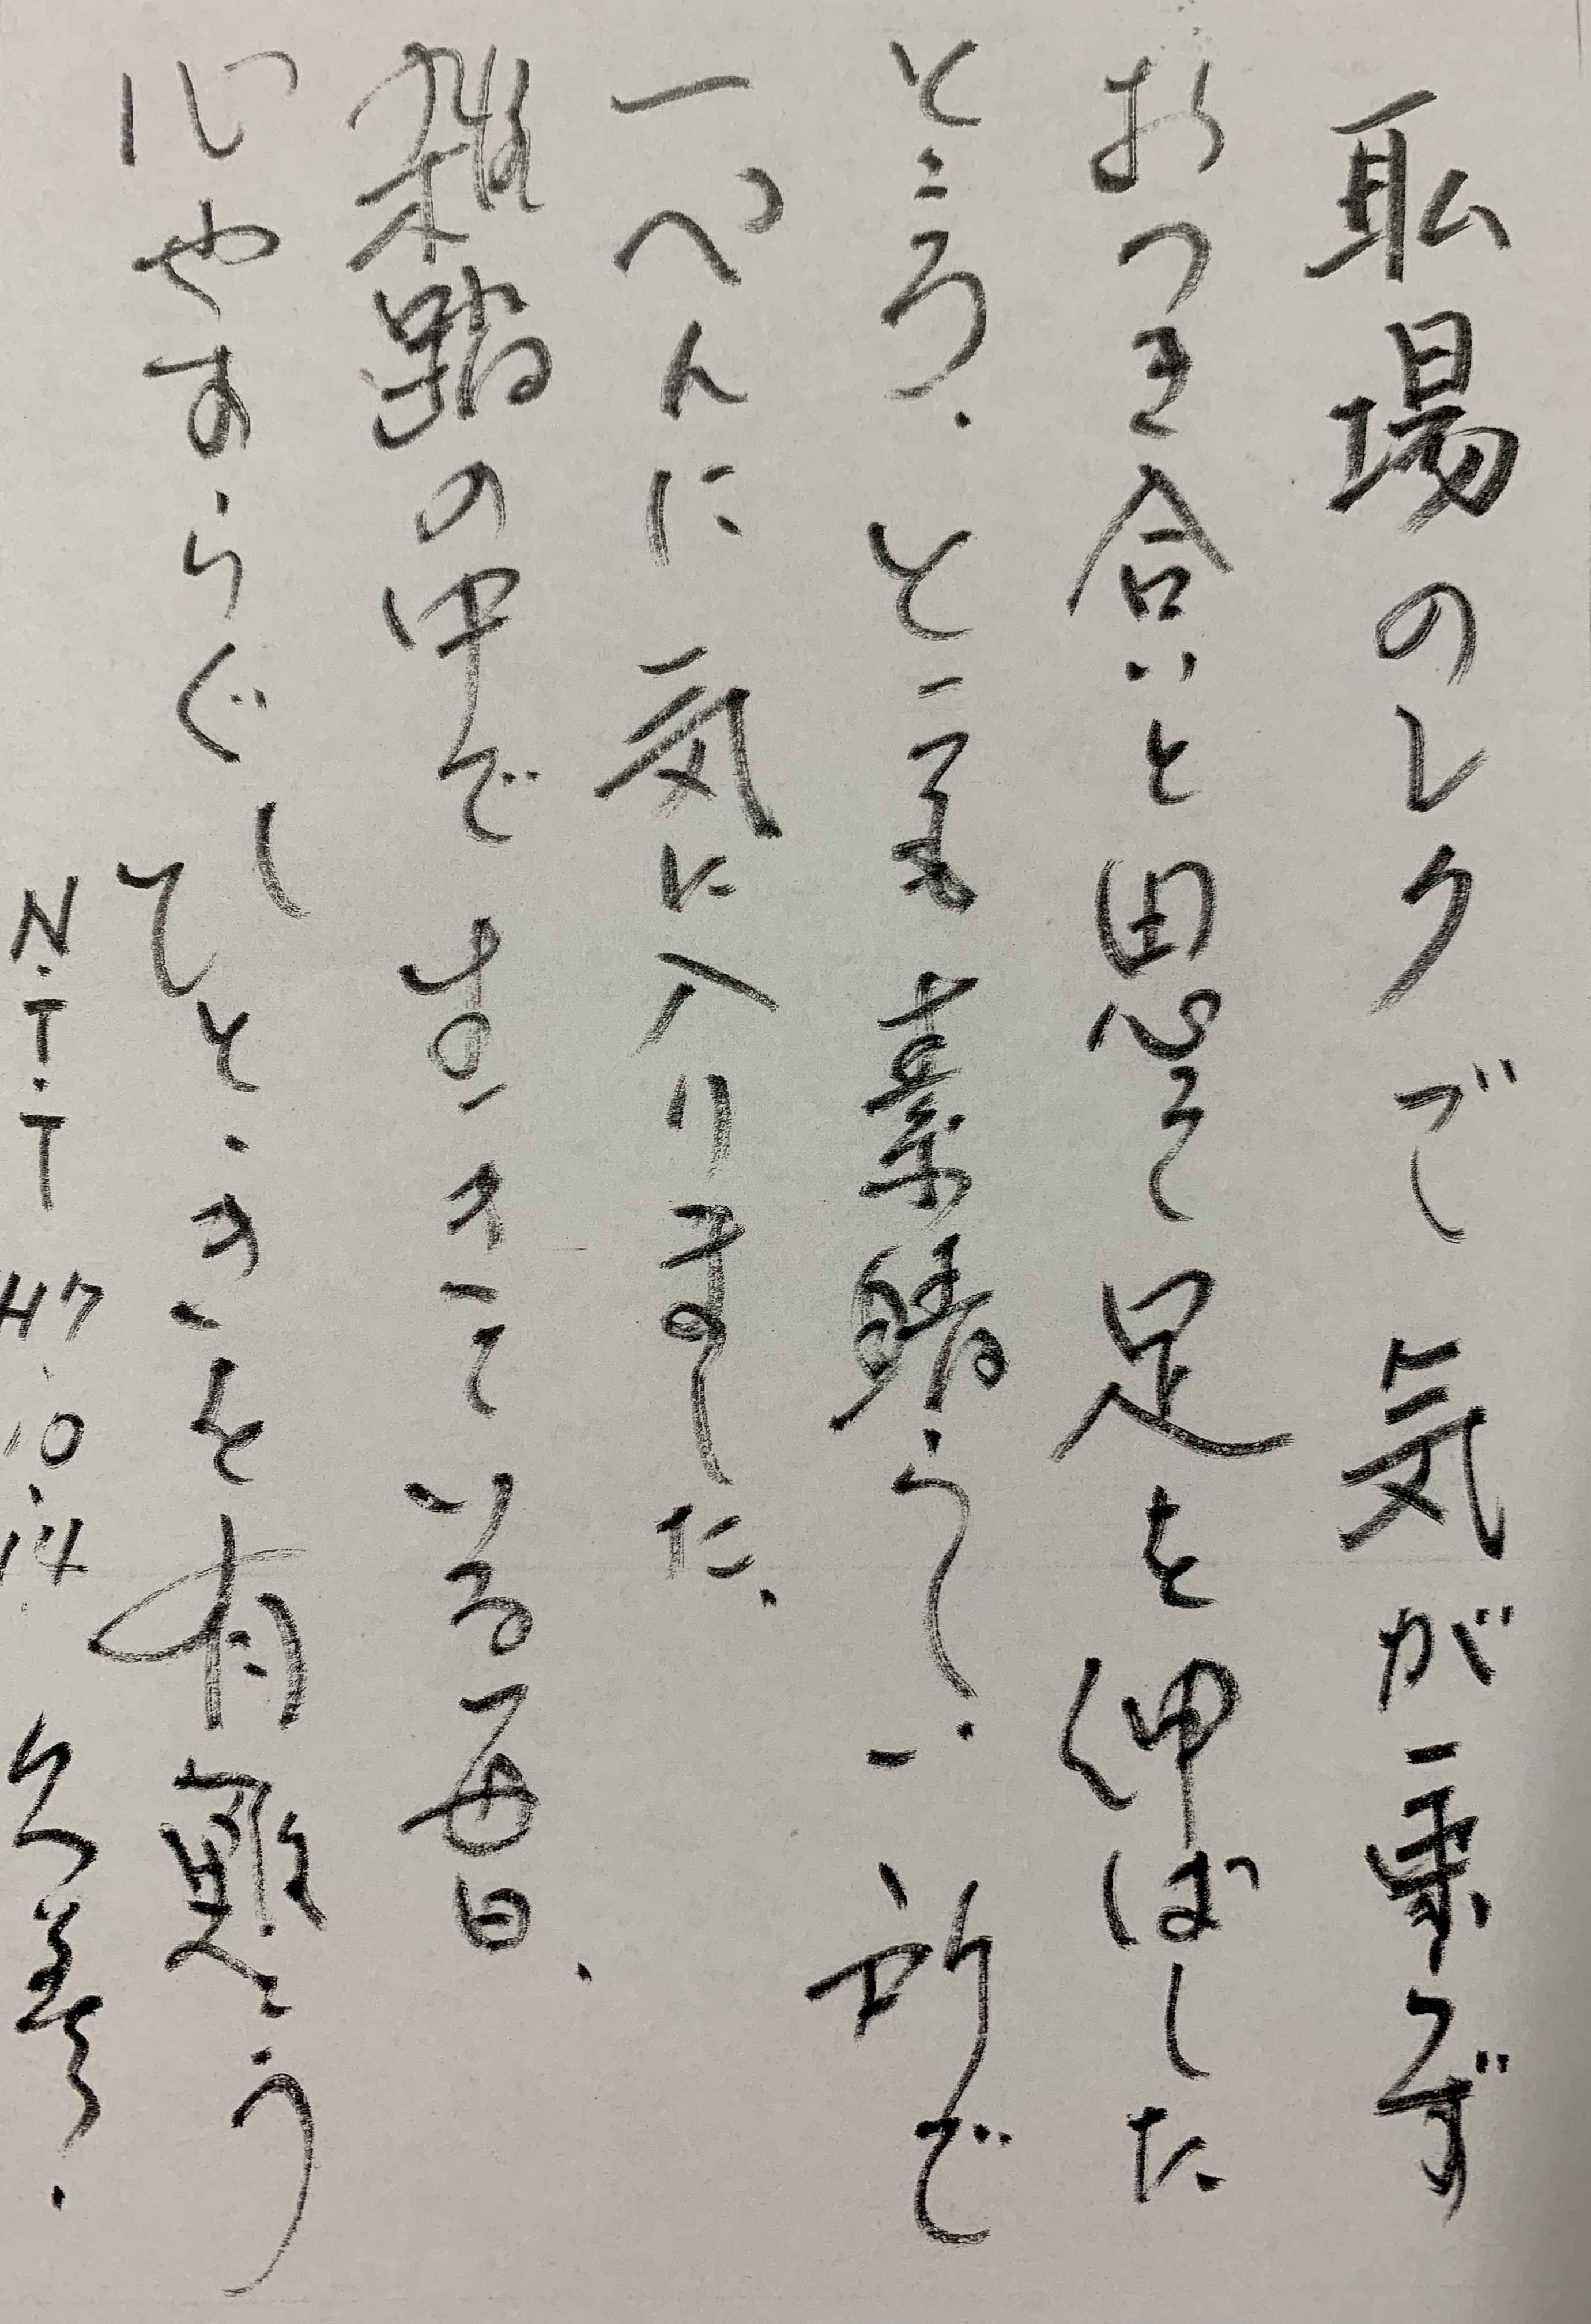 耺場のレクで 気が乗らず
おつき合いと思って足を伸ばした
ところ、素晴らしい所で
一ぺんに 気に入りました、
雑踏の中で いる毎日、
心やすらぐ ひとときを有難う
N.T.T H7.10.14